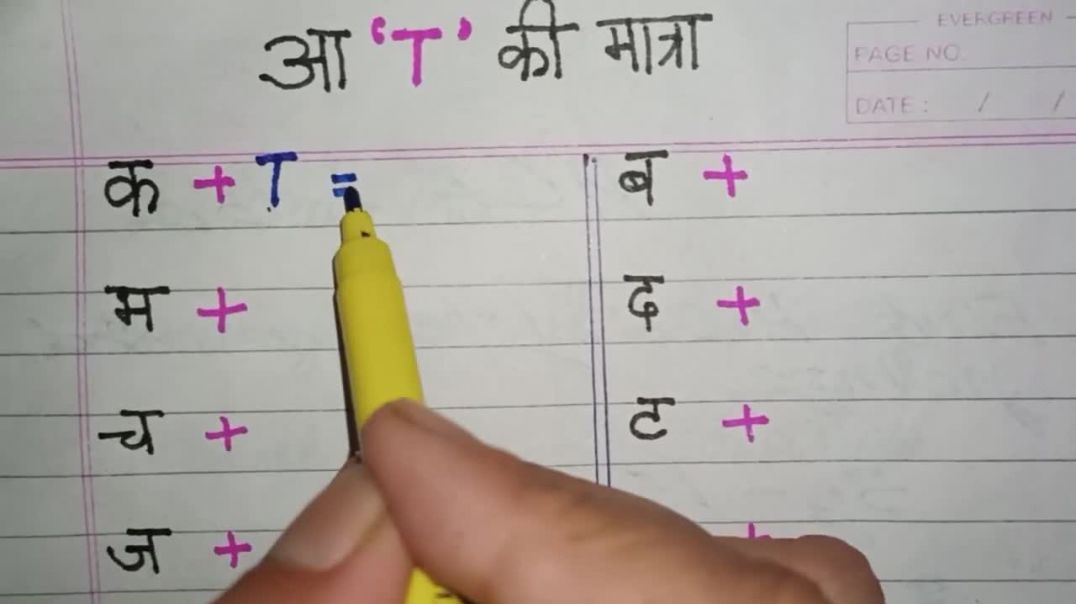 आ 'ा' की मात्रा
EVERGREEN
PAGE NO.
DATE: / /
क + ा =
म +
च +
ज +
ब +
द +
ट +
+